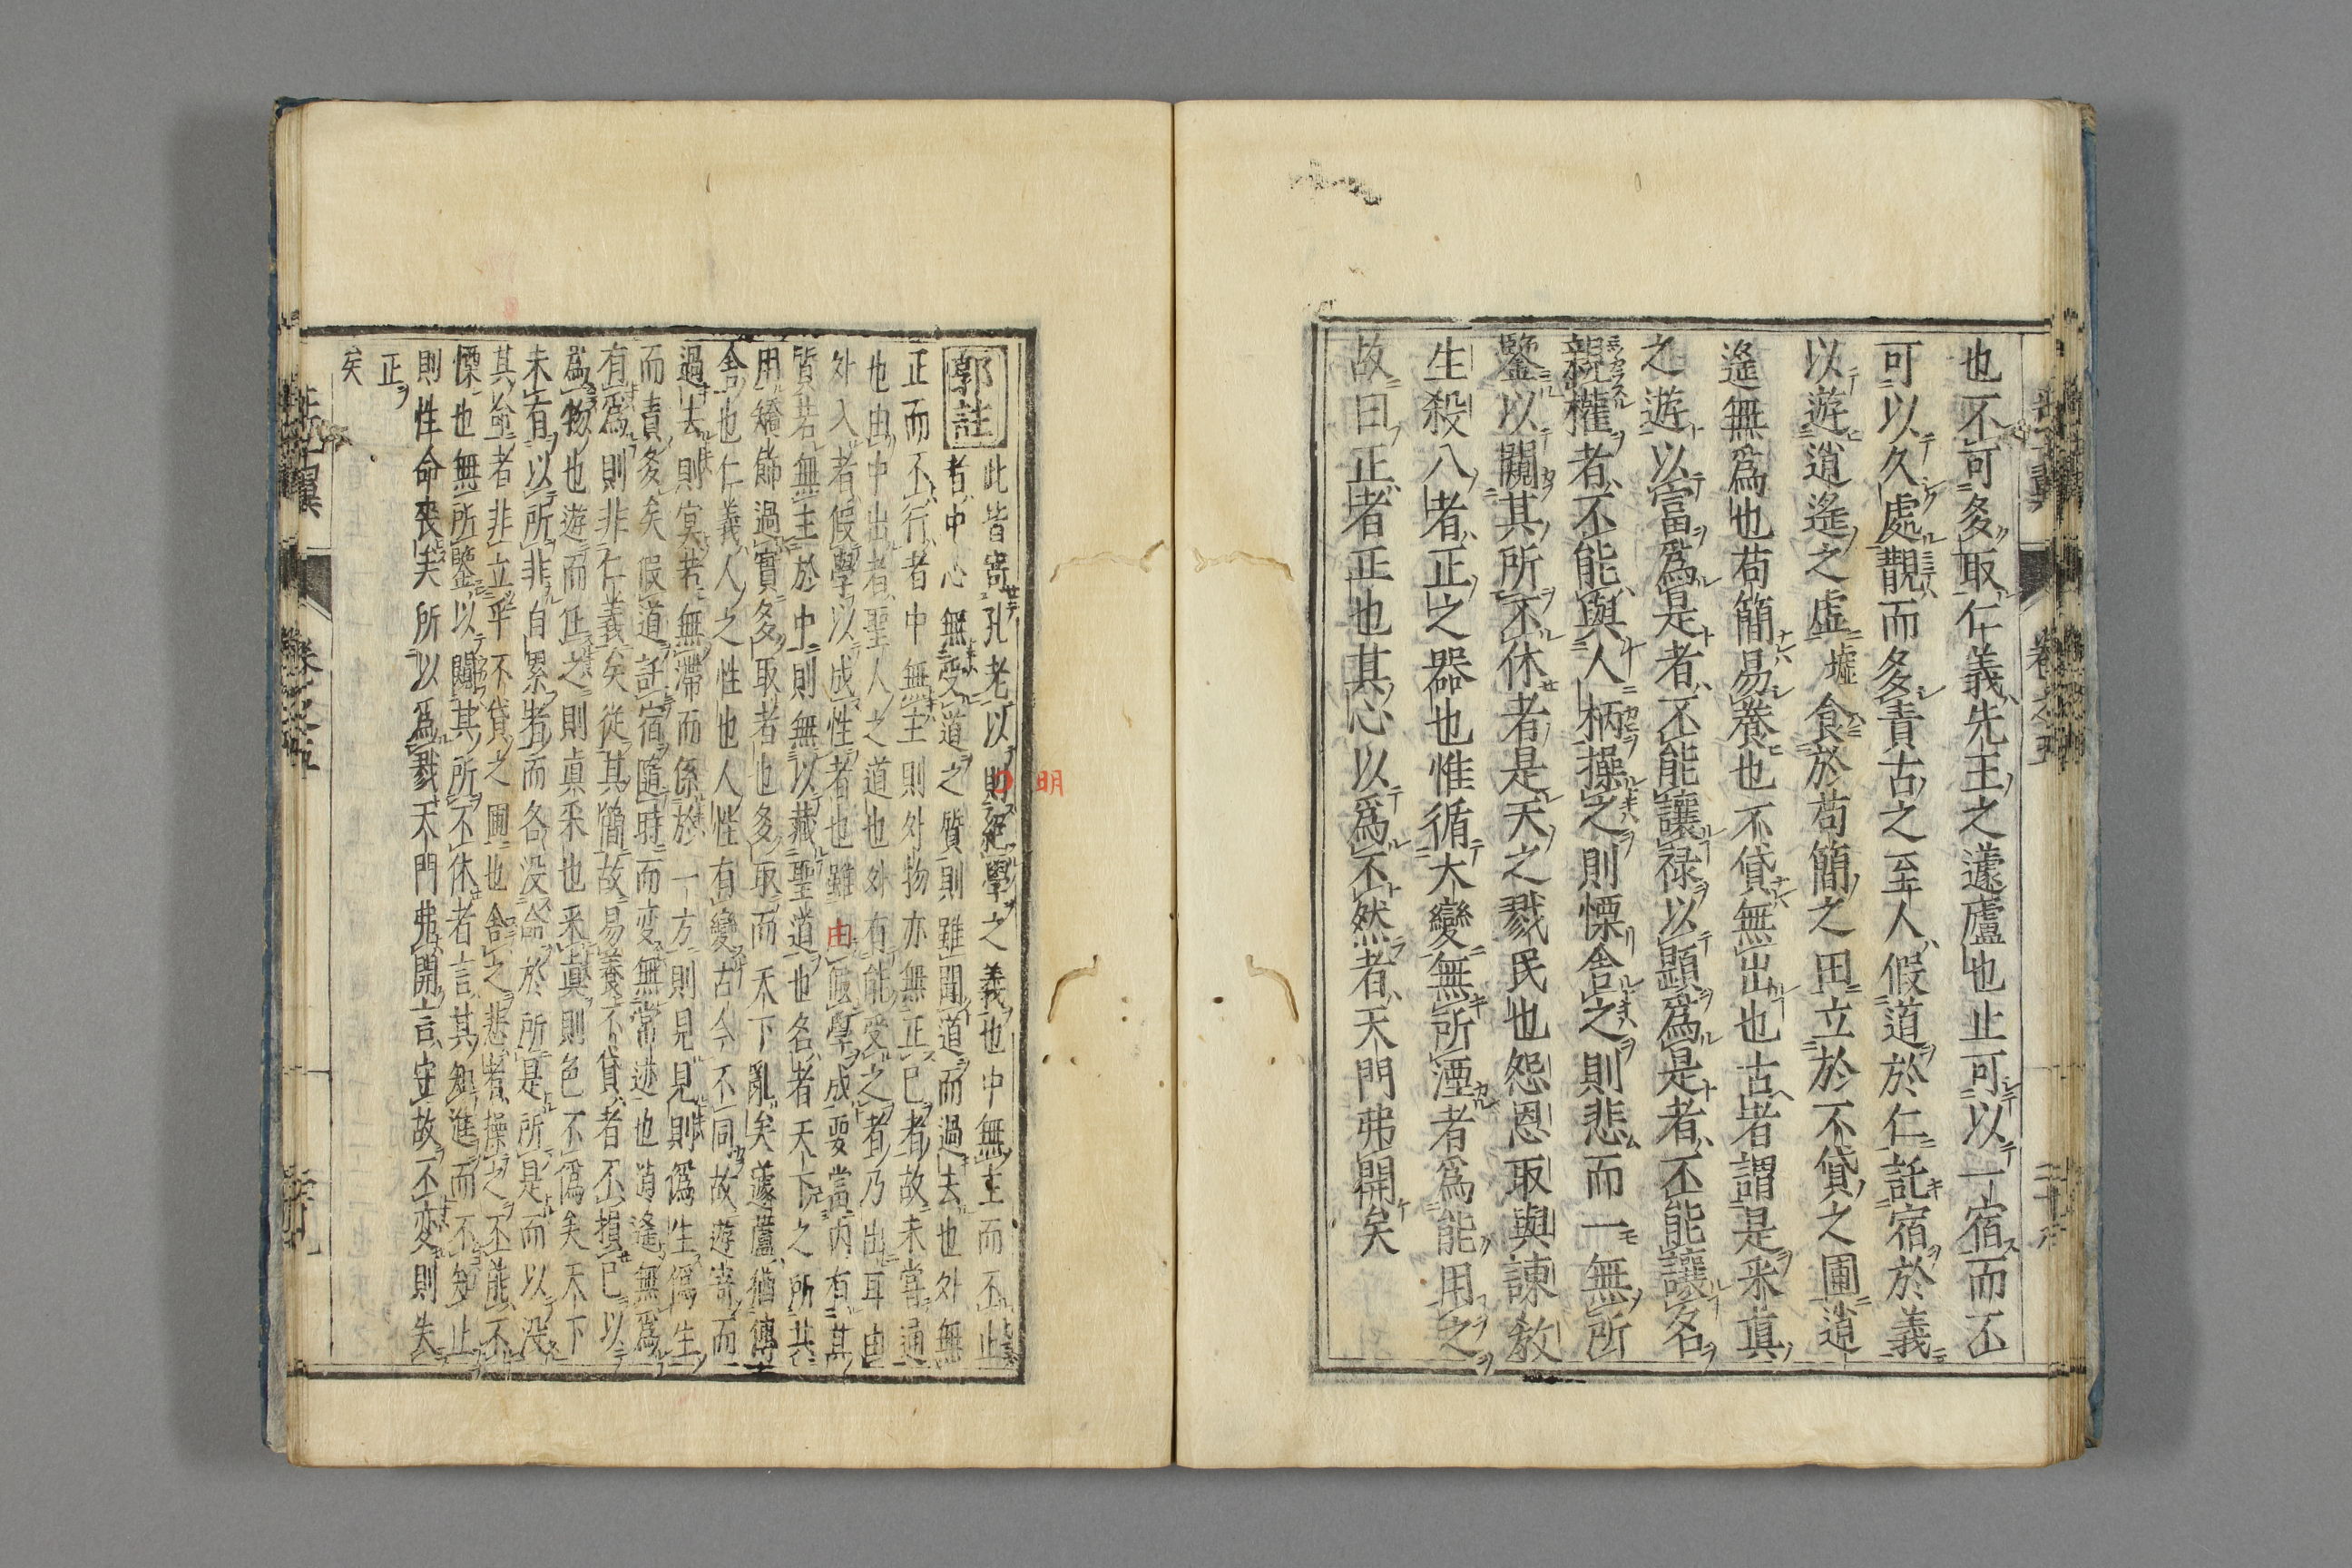 也不可多取仁義先王之蘧廬也止可以一宿而不
可以久處覯而多責古之至人假道於仁託宿於義
以遊逍遙之虛墟食於苟簡之田立於不貸之圃逍
遙無爲也苟簡易養也不貸無出也古者謂是采真
之遊以富爲是者不能讓祿以顯爲是者不能讓名
親權者不能與人柄操之則慄舍之則悲而一無所
鑒以闚其所不休者是天之戮民也怨恩取與諫教
生殺八者正之器也惟循大變無所湮者爲能用之
故曰正者正也其心以爲不然者天門弗開矣
郭註
此皆寄孔老以明絕學之義也中無主而不止
者中心無受道之質則雖聞道而過去也外無
正而不行者中無主則外物亦無正已者故未嘗通
也由中出者聖人之道也外有能受之者乃出耳由
外入者假學以成性者也雖由假學成要當內有其
質若無主於中則無以藏聖道也名者天下之所共
用矯飾過實多取者也多取而天下亂矣蘧廬猶傳
舍也仁義人之性也人性有變古今不同故遊寄而
過去則冥若無滯而係於一方則見見則僞生僞生
而責多矣假道託宿隨時而変無常迹也逍遙無爲
有爲則非仁義矣從其簡故易養不貸者不損已以
爲物也遊而任之則真采也采真則色不僞矣天下
未有以所非自累者而各没命於所是所是而以没
其命者非立乎不貸之圃也舍之悲者操之不能不
慄也無所鑒以闚其所不休者言其知進而不知止
則性命喪矣所以爲戮天門弗開言守故不変則失
正
矣
卷之五